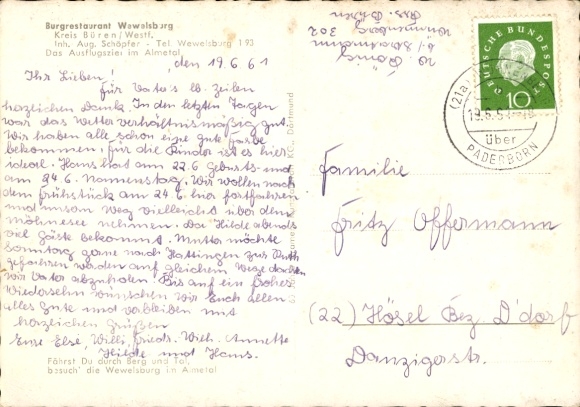 Burgrestaurant Wewelsburg
Kreis Büren/Westf.
Inh. Aug. Schäfer - Tel. Wewelsburg 193
Das Ausflugsziel im Almetal
den 19.6.61
Ihr Lieben!
Für Vater's lb. Zeilen
herzlichen Dank. In den letzten Tagen
war das Wetter verhältnismäßig gut.
Wir haben alle schon eine gute Farbe
bekommen, für die Kinder ist es hier
ideal. Hans hat am 22.6 Geburts- und
am 24.6. Namenstag. Wir wollen nach
dem Frühstück am 24.6. hier fortfahren
und unsern Weg vielleicht über den
Möhnesee nehmen. Da Hilde abends
viel Gäste bekommt. Mutter möchte
Sonntag gerne nach Hattingen zur Ruth
gefahren werden auf gleichem Wege dachten
wir Vater abzuholen. Bis auf ein frohes
Wiedersehn wünschen wir Euch allen
alles Gute und verbleiben mit
herzlichen Grüßen
Eure Else, Willi, Frieds. Wilh. Annette
Hilde und Hans.
Fährst Du durch Berg und Tal,
besuch' die Wewelsburg im Almetal
Dortmund
302
DEUTSCHE BUNDESPOST
10
(21a)
19.6.61
über
PADERBORN
Familie
Fritz Offermann
(22) Hösel Bez. D'dorf
Danzigerstr.